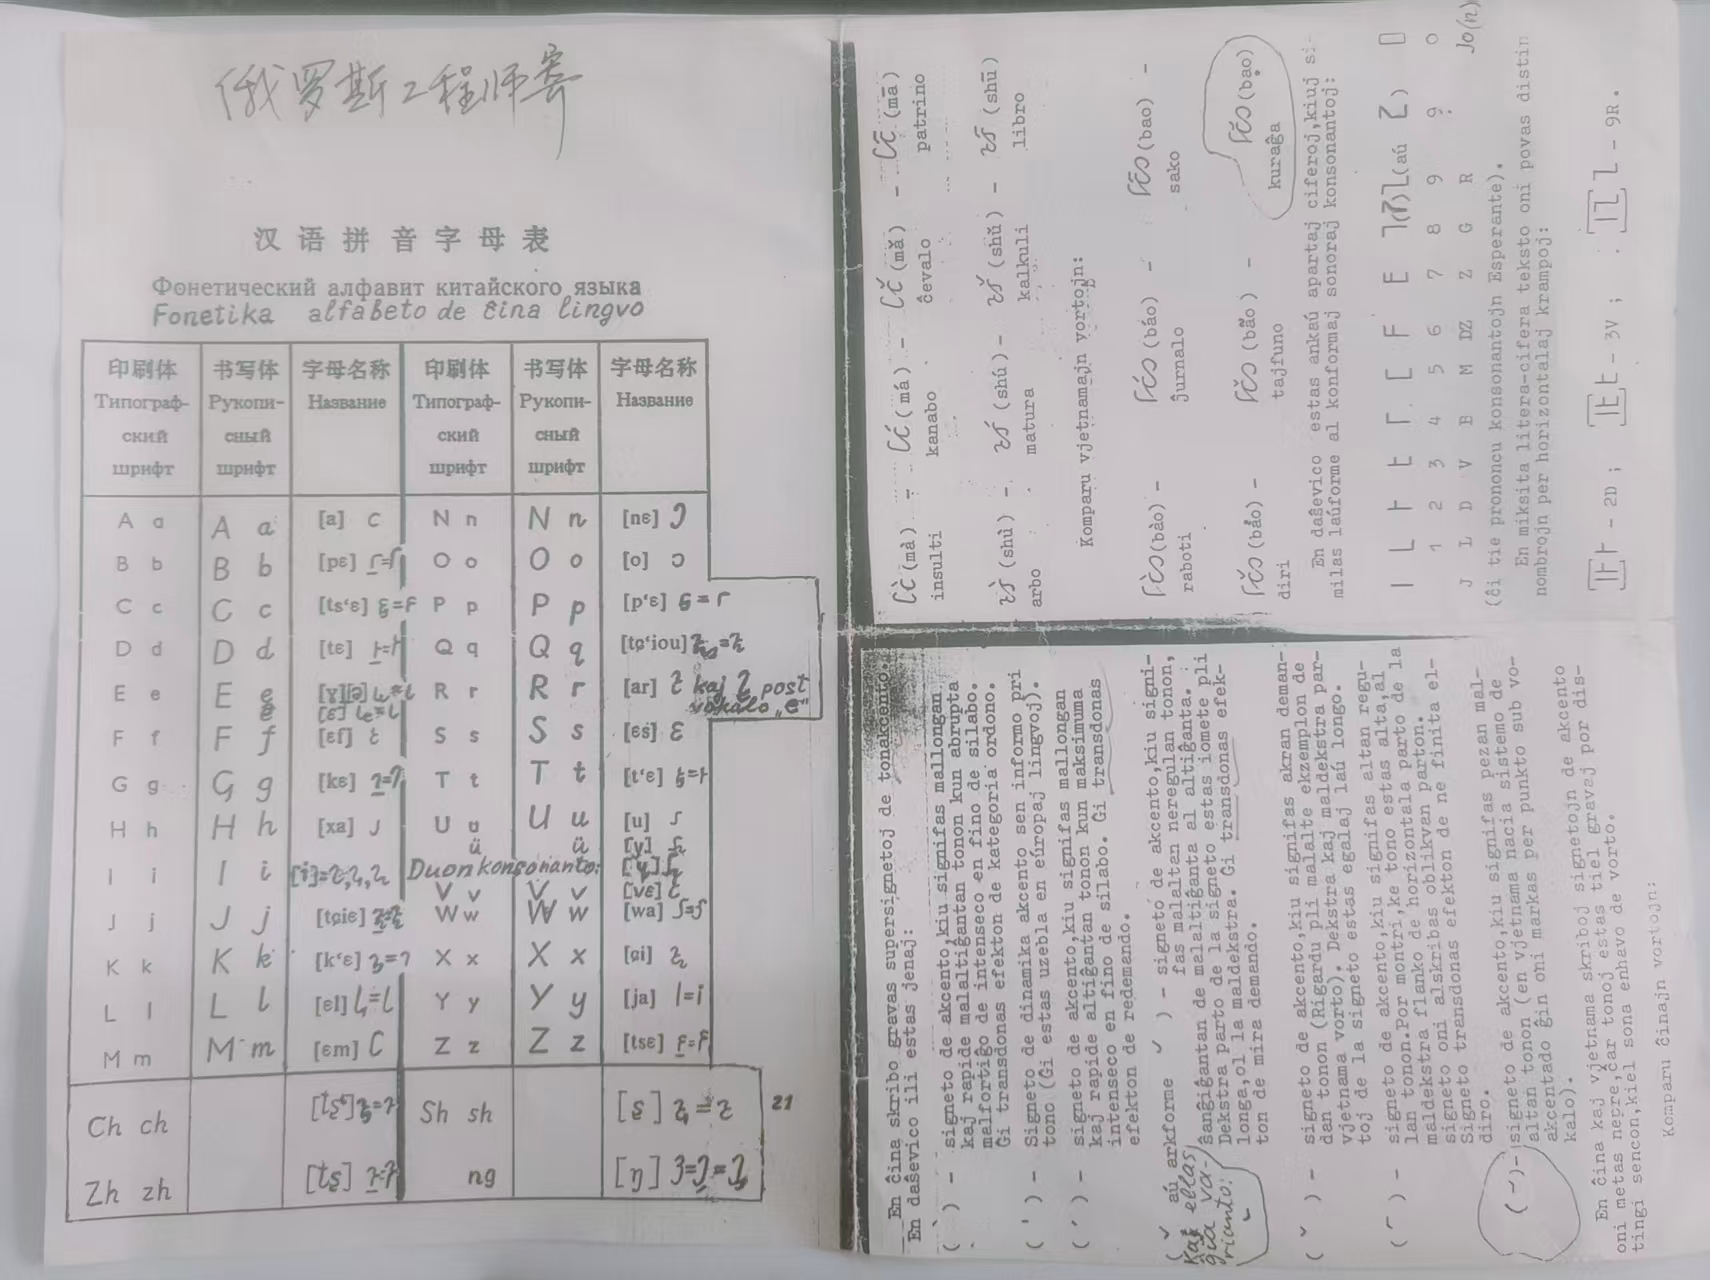 俄罗斯工程师寄
汉语拼音字母表
Фонетический алфавит китайского языка
Fonetika alfabeto de ĉina lingvo
印刷体 书写体 字母名称 印刷体 书写体 字母名称
Типограф- Рукопи- Название Типограф- Рукопи- Название
ский сный ский сный
шрифт шрифт шрифт шрифт
A a A a [a] N n N n [nɛ]
B b B b [pɛ] O o O o [o]
C c C c [ts‘ɛ] P p P p [p‘ɛ]
D d D d [tɛ] Q q Q q [tɕ‘iou]
E e E e [ɣ][ə] R r R r [ar] kaj post
[ɛ] vokalo „e"
F f F f [ɛf] S s S s [ɛs]
G g G g [kɛ] T t T t [t‘ɛ]
H h H h [xa] U u U u [u]
ü ü [y]
I i I i [i] Duonkonsonanto: [ɥ]
V v V v [vɛ]
J j J j [tɕiɛ] W w W w [wa]
K k K k [k‘ɛ] X x X x [ɕi]
L l L l [ɛl] Y y Y y [ja]
M m M m [ɛm] Z z Z z [tsɛ]
Ch ch Sh sh [ʂ] 21
Zh zh [tʂ] ng [ŋ]
(mà) – (má) – (mǎ) – (mā)
insulti kanabo ĉevalo patrino
(shù) – (shú) – (shǔ) – (shū)
arbo matura kalkuli libro
Komparu vjetnamajn vortojn:
(bào) – (báo) – (bao) –
raboti ĵurnalo sako
(bảo) – (bão) – (bạo)
diri tajfuno kuraĝa
En daŝevico estas ankaŭ apartaj ciferoj,kiuj si-
milas laŭforme al konformaj sonoraj konsonantoj:
(aŭ )
1 2 3 4 5 6 7 8 9 9? 0
J L D V B M DZ Z G R Jo(n)
(Ĉi tie prononcu konsonantojn Esperante).
En miksita litera-cifera teksto oni povas distin
nombrojn per horizontalaj krampoj:
– 2D; – 3V; – 9R.
En ĉina skribo gravas supersignetoj de tonakcento.
En daŝevico ili estas jenaj:
( ˋ ) – signeto de akcento,kiu signifas mallongan
kaj rapide malaltiĝantan tonon kun abrupta
malfortiĝo de intenseco en fino de silabo.
Ĝi transdonas efekton de kategoria ordono.
( ' ) – Signeto de dinamika akcento sen informo pri
tono (Ĝi estas uzebla en eŭropaj lingvoj).
( ˊ ) – signeto de akcento,kiu signifas mallongan
kaj rapide altiĝantan tonon kun maksimuma
intenseco en fino de silabo. Ĝi transdonas
efekton de redemando.
( ˇ aŭ arkforme ˘ ) – signeto de akcento,kiu signi-
fas malaltan neregulan tonon,
Kaj eblas
ĝia va-
rianto:
ŝanĝiĝantan de malaltiĝanta al altiĝanta.
Dekstra parto de la signeto estas iomete pli
longa,ol la maldekstra. Ĝi transdonas efek-
ton de mira demando.
( ˇ ) – signeto de akcento,kiu signifas akran deman-
dan tonon (Rigardu pli malalte ekzemplon de
vjetnama vorto). Dekstra kaj maldekstra par-
toj de la signeto estas egalaj laŭ longo.
( ) – signeto de akcento,kiu signifas altan regu-
lan tonon.Por montri,ke tono estas alta,al
maldekstra flanko de horizontala parto de la
signeto oni alskribas oblikvan parton.
Signeto transdonas efekton de ne finita el-
diro.
( ) – signeto de akcento,kiu signifas pezan mal-
altan tonon (en vjetnama nacia sistemo de
akcentado ĝin oni markas per punkto sub vo-
kalo).
En ĉina kaj vjetnama skriboj signetojn de akcento
oni metas nepre,ĉar tonoj estas tiel gravaj por dis-
tingi sencon,kiel sona enhavo de vorto.
Komparu ĉinajn vortojn: